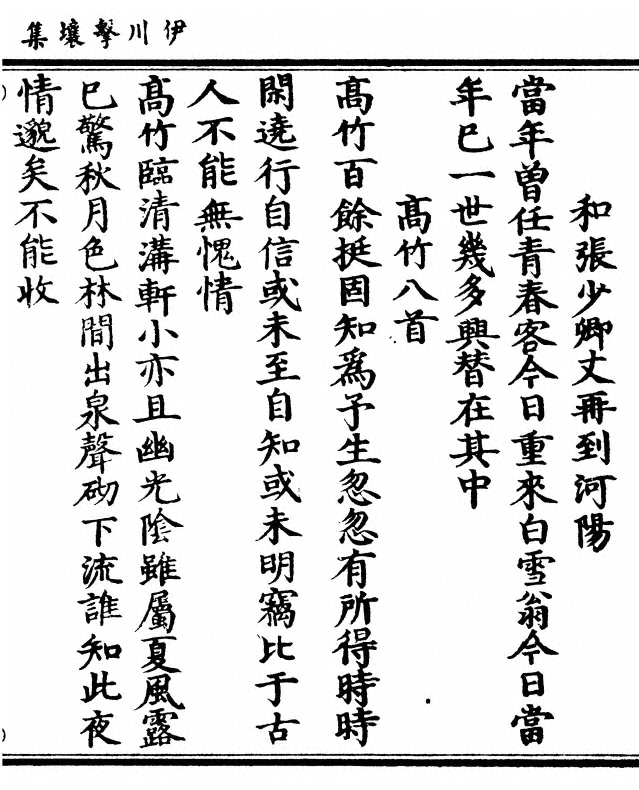 伊川擊壤集
和張少卿丈再到河陽
當年曾任青春客今日重來白雪翁今日當
年巳一世幾多興替在其中
高竹八首
高竹百餘挺固知爲予生忽忽有所得時時
閑遶行自信或未至自知或未明竊比于古
人不能無愧情
高竹臨清溝軒小亦且幽光陰雖屬夏風露
巳驚秋月色林間出泉聲砌下流誰知此夜
情邈矣不能收